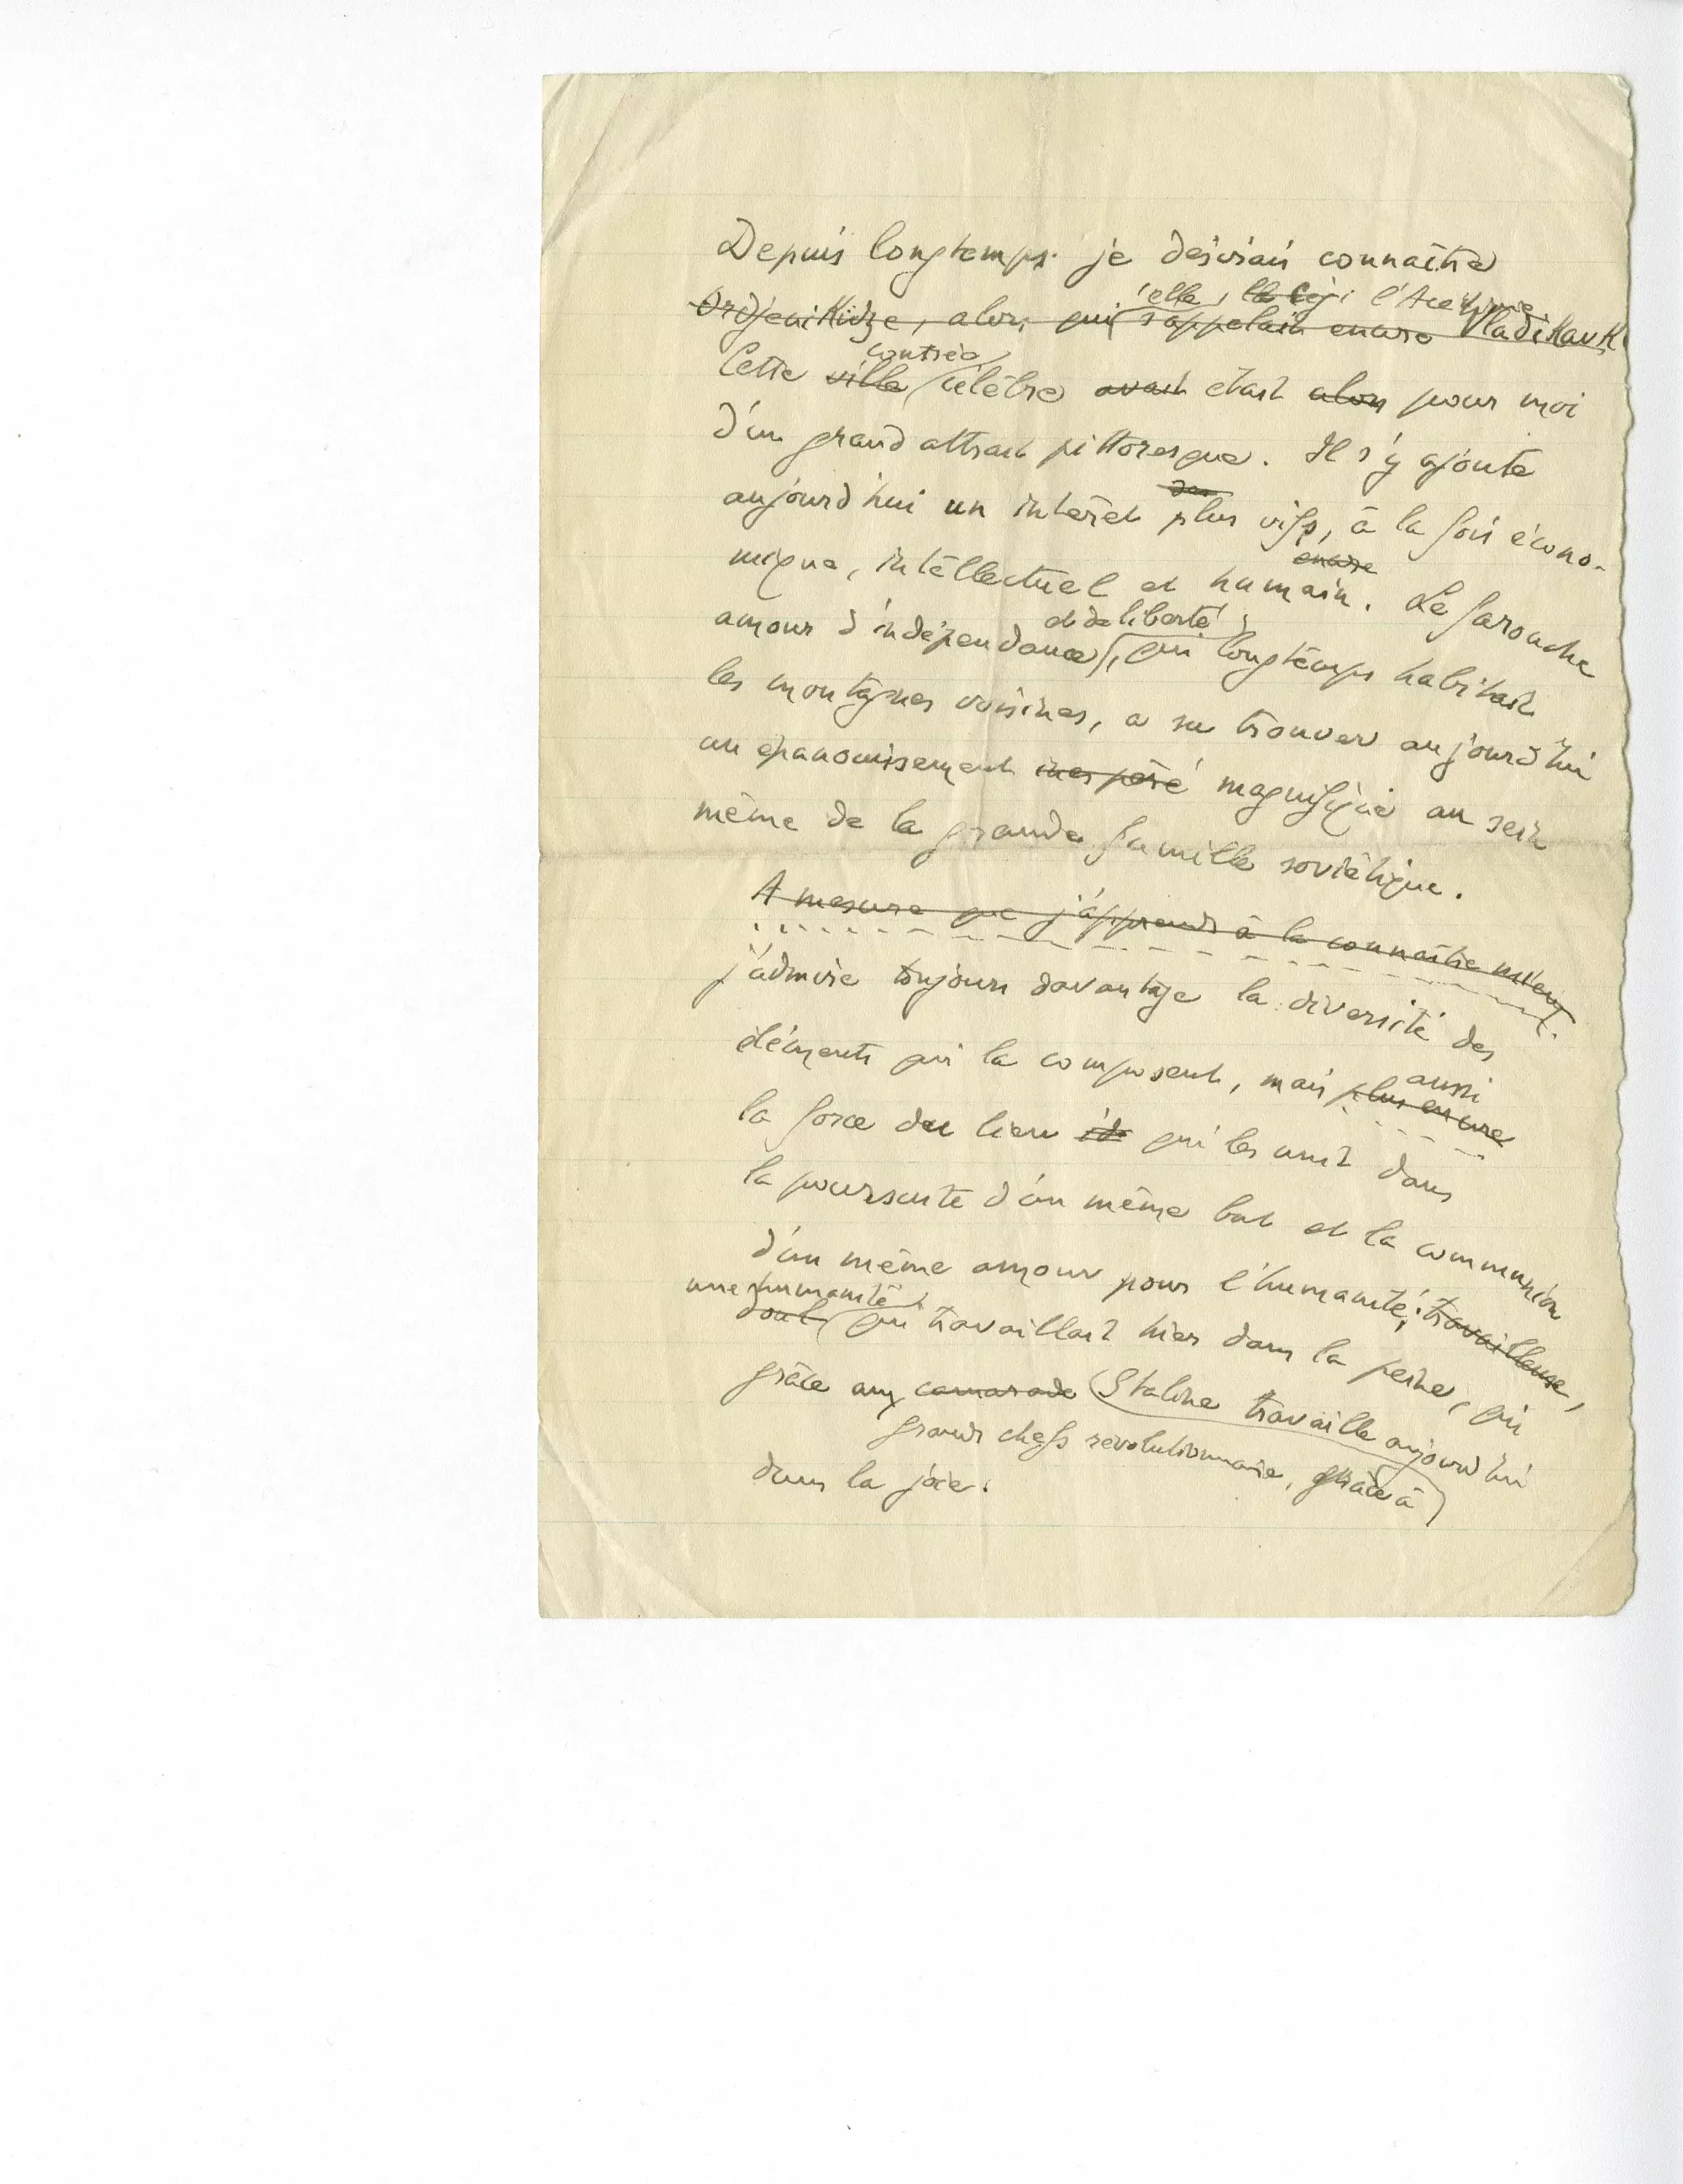 Depuis longtemps je désirais connaître
l'Acéthie
Ordjenikidze, alors qui s'appelait encore Vladikavk
contrée
Cette ville célèbre avait était alors pour moi
d'un grand attrait pittoresque. Il s'y ajoute
des
aujourd'hui un intérêt plus vifs, à la fois écono-
encore
mique, intellectuel et humain. Le farouche
et de liberté
amour d'indépendance, qui longtemps habitait
les montagnes voisines, a su trouver aujourd'hui
un epanouissement inespéré magnifique au sein
même de la grande famille soviétique.
A mesure que j'apprends à la connaître mieux
j'admire toujours davantage la diversité des
éléments qui la composent, mais plus encore
aussi
la force du lien qui les unit dans
la poursuite d'un même but et la communion
d'un même amour pour l'humanité; travailleuse,
une humanité
dont qui travaillait hier dans la peine, qui
grâce aux camarade Staline travaille aujourd'hui
grands chefs revolutionnaire, grâce à
dans la joie.